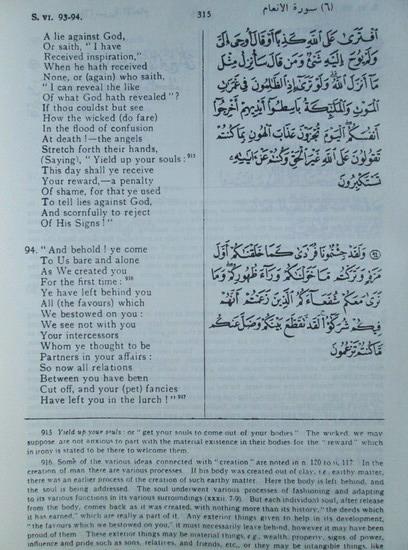 S. VI. 93-94.
315
(٦) سورة الأنعام
A lie against God,
Or saith, "I have
Received inspiration,"
When he hath received
None, or (again) who saith,
"I can reveal the like
Of what God hath revealed"?
If thou couldst but see
How the wicked (do fare)
In the flood of confusion
At death!—the angels
Stretch forth their hands,
(Saying), "Yield up your souls: 915
This day shall ye receive
Your reward,—a penalty
Of shame, for that ye used
To tell lies against God,
And scornfully to reject
Of His Signs!"
افترى على الله كذبا أو قال أوحى إلى
ولم يوح إليه شيء ومن قال سأنزل مثل
ما أنزل الله ولو ترى إذ الظالمون في غمرات
الموت والملائكة باسطوا أيديهم أخرجوا
أنفسكم اليوم تجزون عذاب الهون بما كنتم
تقولون على الله غير الحق وكنتم عن آياته
تستكبرون
94. "And behold! ye come
To Us bare and alone
As We created you
For the first time: 916
Ye have left behind you
All (the favours) which
We bestowed on you:
We see not with you
Your intercessors
Whom ye thought to be
Partners in your affairs:
So now all relations
Between you have been
Cut off, and your (pet) fancies
Have left you in the lurch!" 917
٩٤ ولقد جئتمونا فرادى كما خلقناكم أول
مرة وتركتم ما خولناكم وراء ظهوركم وما
نرى معكم شفعاءكم الذين زعمتم أنهم
فيكم شركؤا لقد تقطع بينكم وضل عنكم
ما كنتم تزعمون
915. Yield up your souls: or "get your souls to come out of your bodies." The wicked, we may
suppose, are not anxious to part with the material existence in their bodies for the "reward" which
in irony is stated to be there to welcome them.
916. Some of the various ideas connected with "creation" are noted in n. 120 to ii, 117. In the
creation of man there are various processes. If his body was created out of clay, i.e., earthy matter,
there was an earlier process of the creation of such earthy matter. Here the body is left behind, and
the soul is being addressed. The soul underwent various processes of fashioning and adapting
to its various functions in its various surroundings (xxxii. 7-9). But each individual soul, after release
from the body, comes back as it was created, with nothing more than its history, "the deeds which
it has earned," which are really a part of it. Any exterior things given to help in its development,
"the favours which we bestowed on you," it must necessarily leave behind, however it may have been
proud of them. These exterior things may be material things, e.g., wealth, property, signs of power,
influence and pride such as sons, relatives, and friends, etc., or they may be intangible things, like